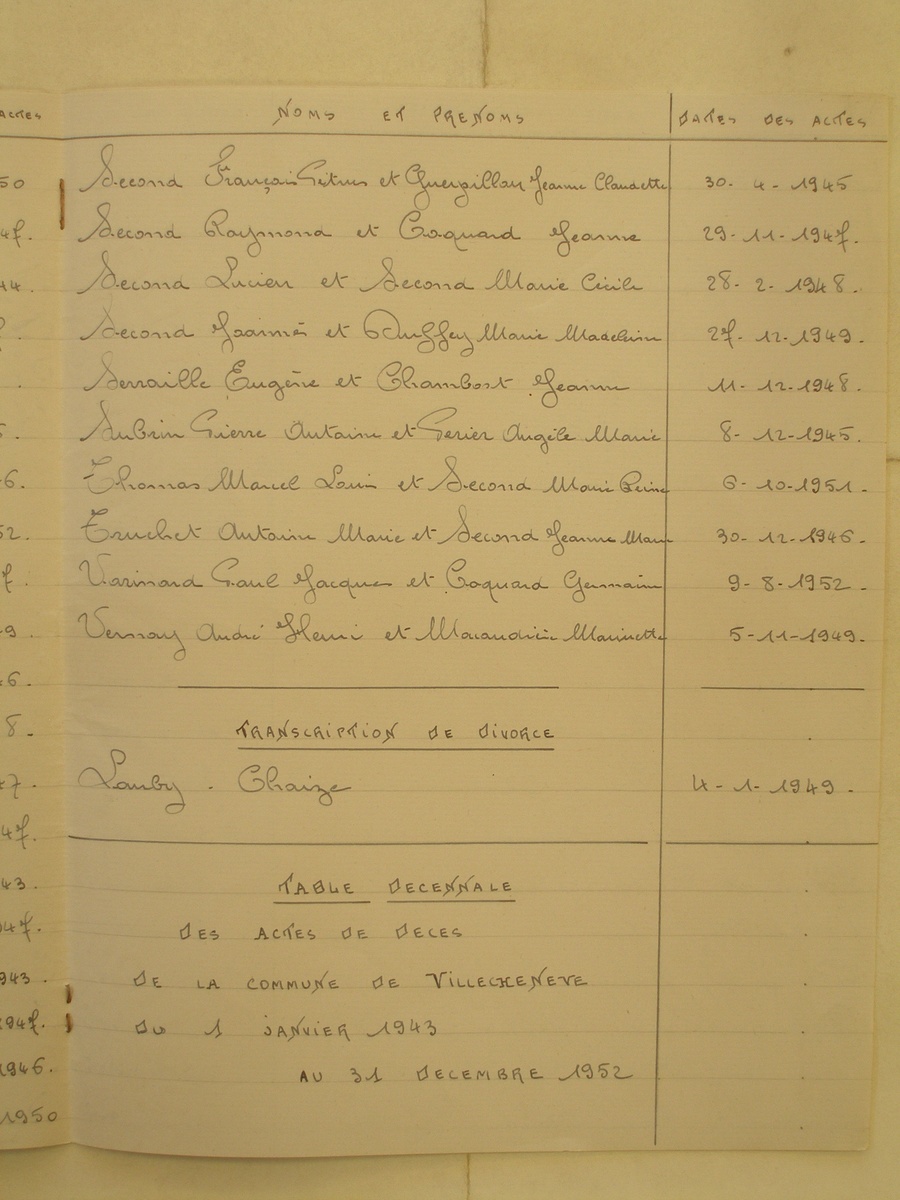 ACTES NOMS ET PRENOMS DATES DES ACTES
50 Second François Petrus et Guerpillon Jeanne Claudette 30. 4 - 1945
47. Second Raymond et Coquard Jeanne 29-11-1947.
44. Second Lucien et Second Marie Cécile 28- 2- 1948.
Second Joannès et Duffey Marie Madeleine 27- 12-1949.
Serraille Eugène et Chambost Jeanne 11- 12-1948.
5. Subrin Pierre Antoine et Perier Angèle Marie 8- 12-1945.
6. Thomas Marcel Louis et Second Marie Reine 6- 10-1951-
52. Truchet Antoine Marie et Second Jeanne Marie 30- 12-1946-
7. Varinard Paul Jacques et Coquard Germaine 9- 8-1952-
9. Vernay André Henri et Marinette 5-11-1949.
46.
8- TRANSCRIPTION DE DIVORCE
47. Lauby - Chaize 4- 1- 1949-
47.
43. TABLE DECENNALE
47. DES ACTES DE DECES
943. DE LA COMMUNE DE VILLECHENEVE
1947. DU 1 JANVIER 1943
1946. AU 31 DECEMBRE 1952
1950